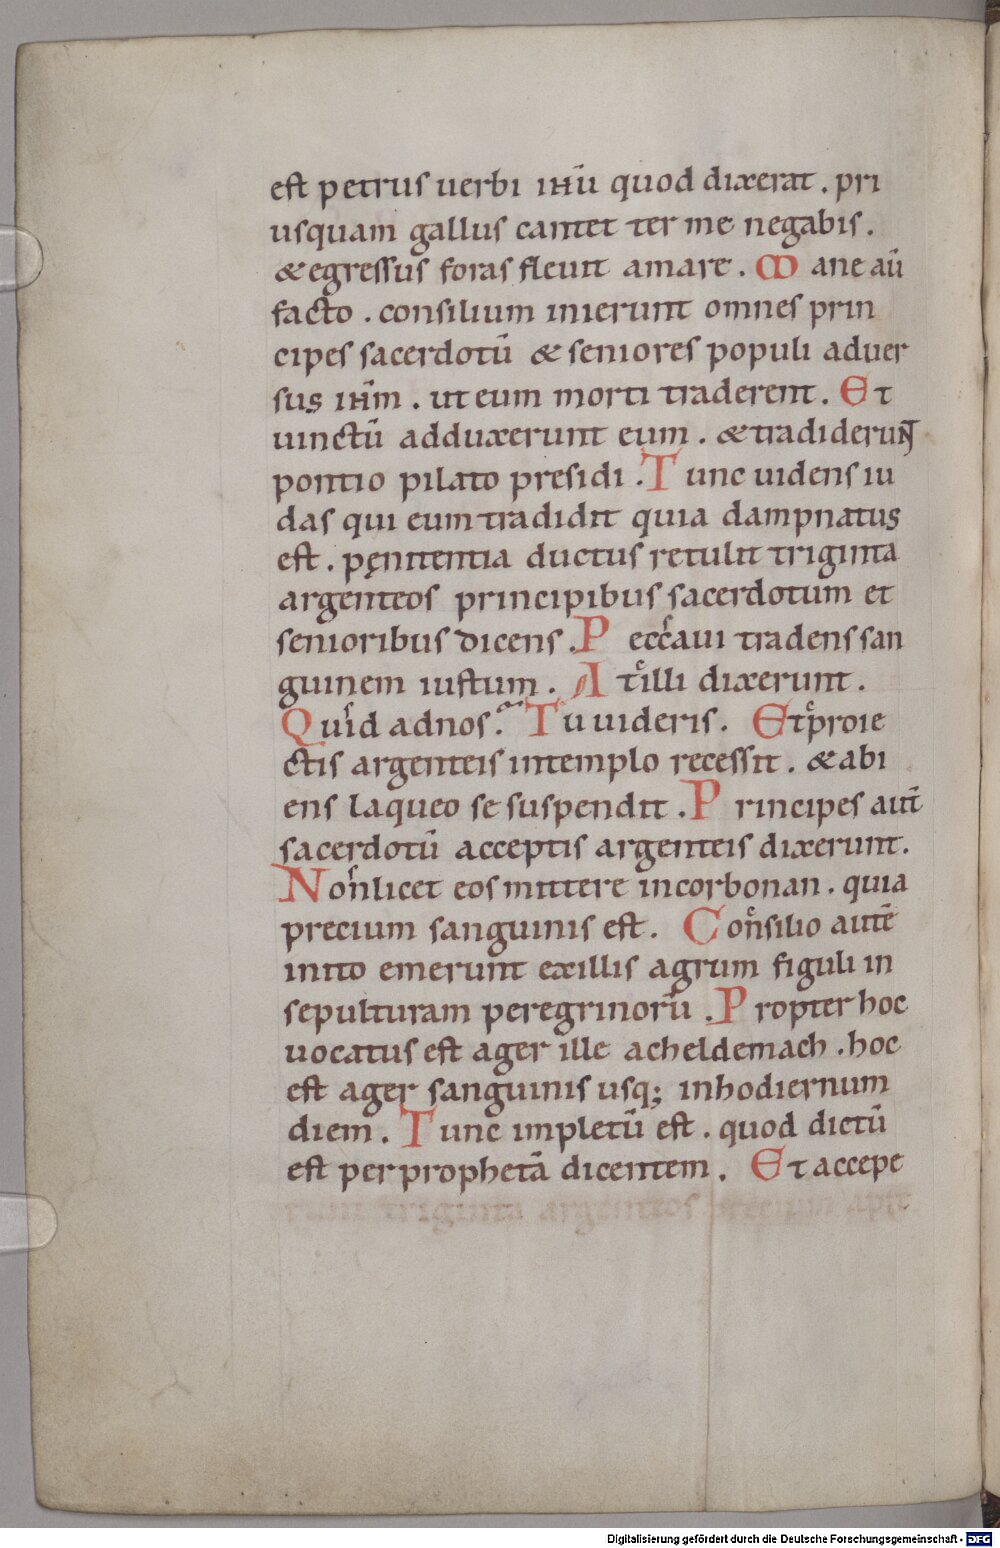 est petrus uerbi ihū quod dixerat . pri
usquam gallus cantet ter me negabis .
& egressus foras fleuit amare . Mane aū
facto . consilium inierunt omnes prin
cipes sacerdotū & seniores populi aduer
sus ihm̄ . ut eum morti traderent . Et
uinctū adduxerunt eum . & tradiderunt
pontio pilato presidi . Tunc uidens iu
das qui eum tradidit quia dampnatus
est . pęnitentia ductus retulit triginta
argenteos principibus sacerdotum et
senioribus dicens . Peccaui tradens san
guinem iustum . At illi dixerunt .
Quid ad nos ? Tu uideris . Et proie
ctis argenteis in templo recessit . & abi
ens laqueo se suspendit . Principes aut̄
sacerdotū acceptis argenteis dixerunt .
Non licet eos mittere in corbonan . quia
precium sanguinis est . Consilio autē
inito emerunt ex illis agrum figuli in
sepulturam peregrinorū . Propter hoc
uocatus est ager ille acheldemach . hoc
est ager sanguinis usq; in hodiernum
diem . Tunc impletū est . quod dictū
est per prophetā dicentem . Et accepe
runt triginta argenteos precium apre
Digitalisierung gefördert durch die Deutsche Forschungsgemeinschaft - DFG